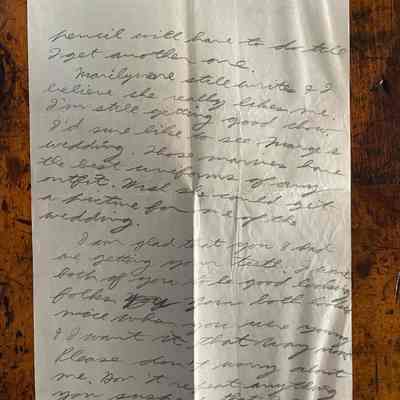 pencil will have to do till
I get another one.
Marilyn & me still write & I
believe she really likes me.
I'm still getting good chow.
I'd sure like to see Marge's
wedding. Those marines have
the best uniforms of any
outfit. Wish she could get
a picture for me of the
wedding.
I am glad that you & Dad
are getting your teeth. I want
both of you to be good looking
folks. You both looked
nice when you were young
& I want it that way now.
Please don't worry about
me. Don't repeat anything
you